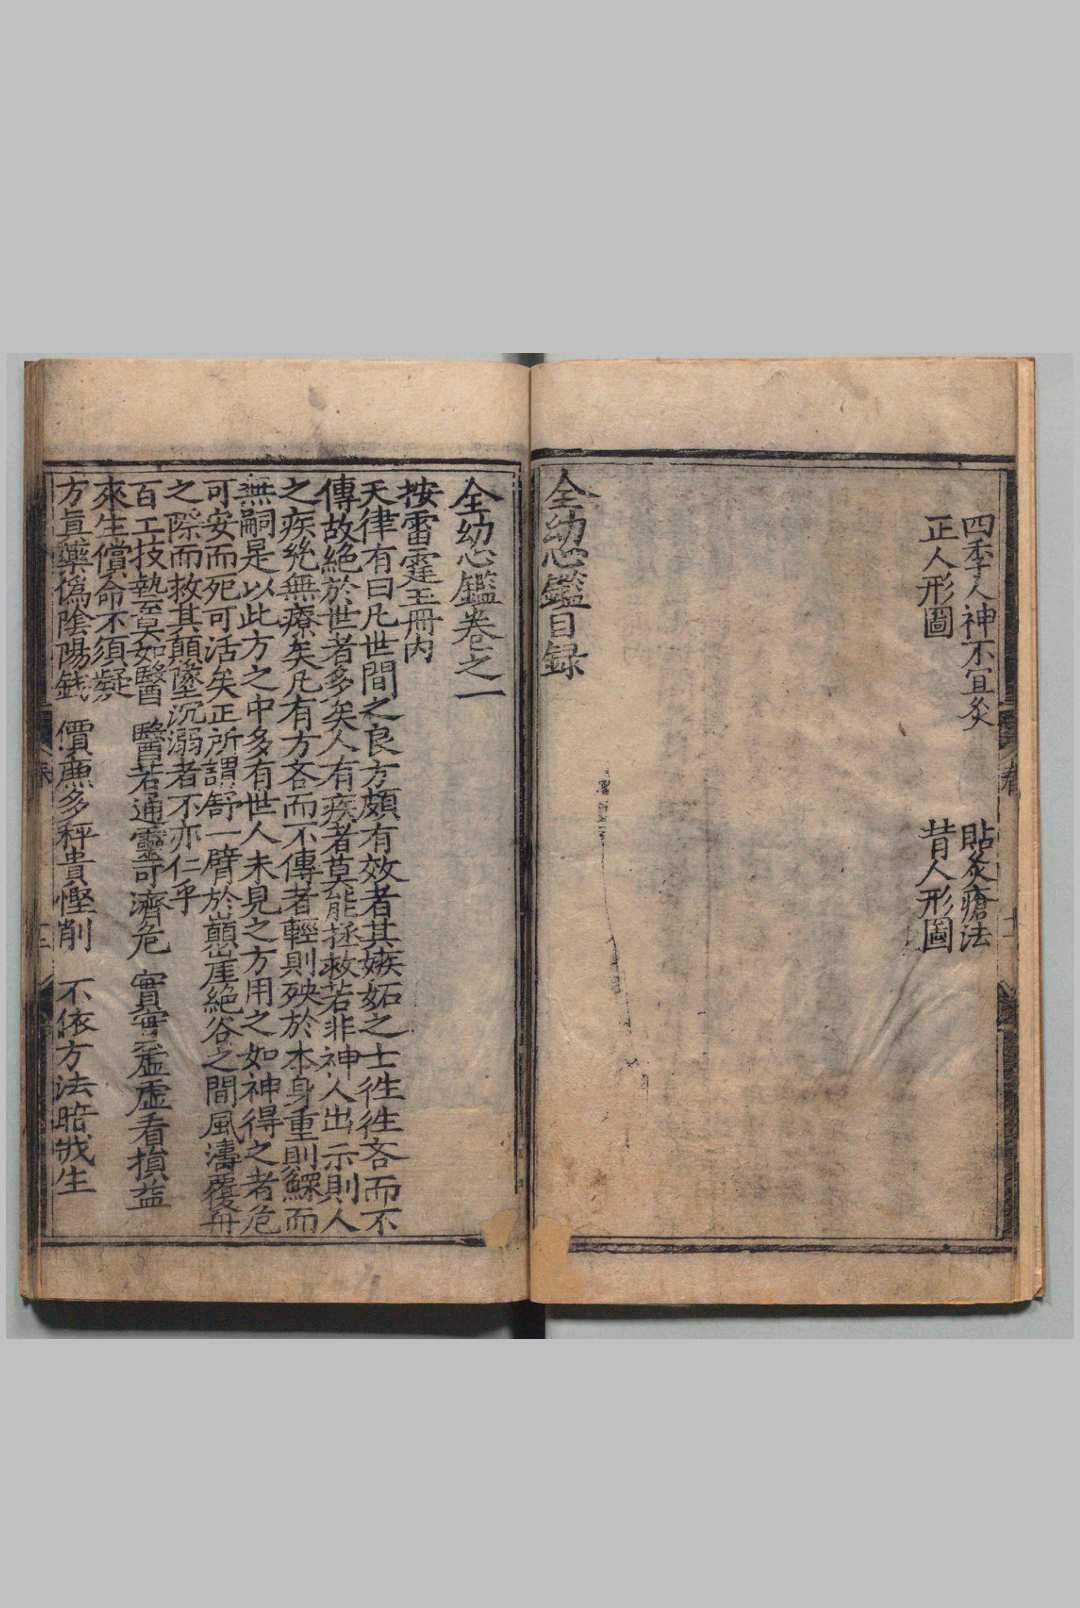 四季人神不宜灸　貼灸瘡法
正人形圖　背人形圖
全幼心鑑目録
全幼心鑑卷之一
按雷霆玉冊内
天律有曰凡世間之良方頗有效者其嫉妬之士徃徃吝而不
傳故絕於世者多矣人有疾者莫能拯救若非神人出示則人
之疾㡬無療矣凡有方吝而不傳者輕則殃於本身重則鰥而
無嗣是以此方之中多有世人未見之方用之如神得之者危
可安而死可活矣正所謂舒一臂於巔崖絕谷之間風濤覆舟
之際而救其顛墜沉溺者不亦仁乎
百工技執至莫如醫　醫若通靈可濟危　實實虛虛看損益
來生償命不須疑
方眞藥偽陰陽錢　價廉多秤貴慳削　不依方法暗戕生